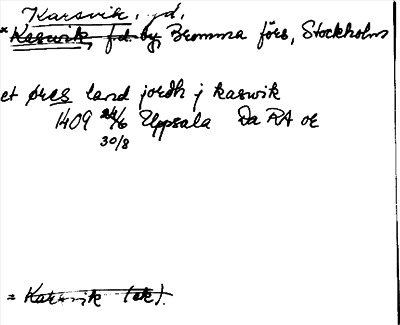 Karsvik, gd.
* Kaswik, fd. by, Bromma förs, Stockholms
et øres land jordh j kaswik
1409 24/6 Uppsala Da RA oe
30/8
= Karsvik (ek).